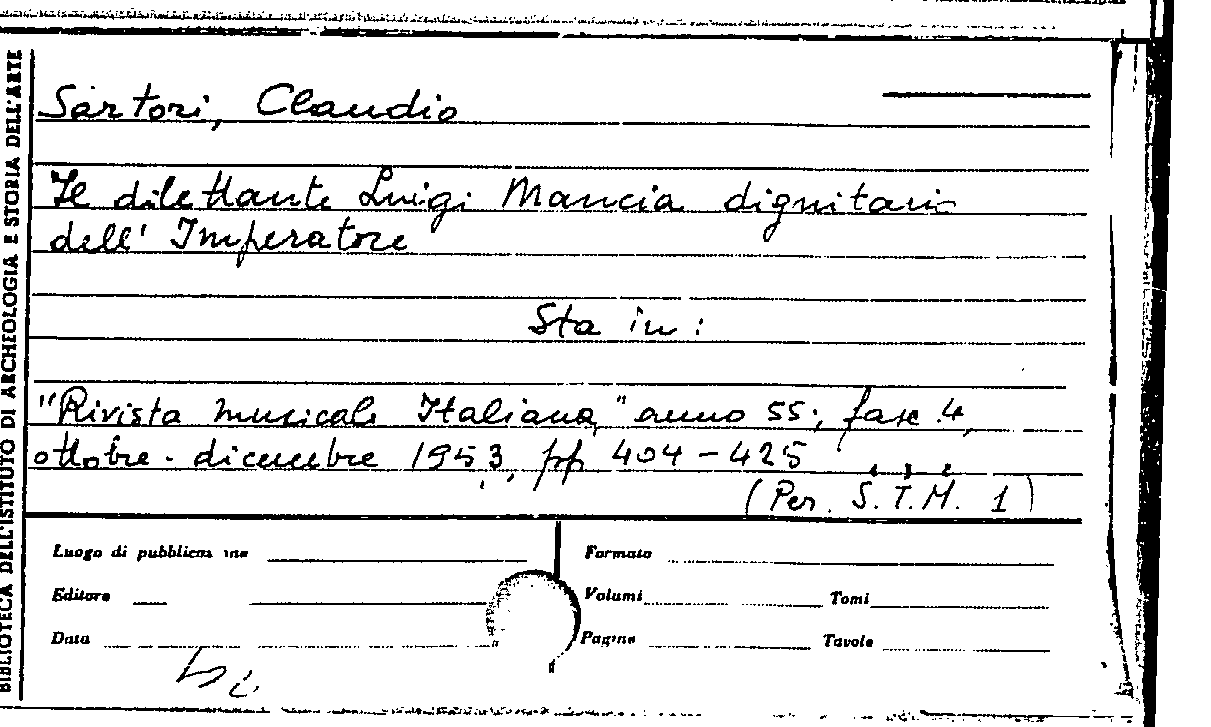 BIBLIOTECA DELL'ISTITUTO DI ARCHEOLOGIA E STORIA DELL'ARTE
Sartori, Claudio
Il dilettante Luigi Mancia dignitario
dell' Imperatore
Sta in:
"Rivista musicale Italiana," anno 55; fasc. 4,
ottobre - dicembre 1953, pp 404-425
(Per. S.T.M. 1)
Luogo di pubblicaz ine
Formato
Editore
Volumi
Tomi
Data
Pagine
Tavole